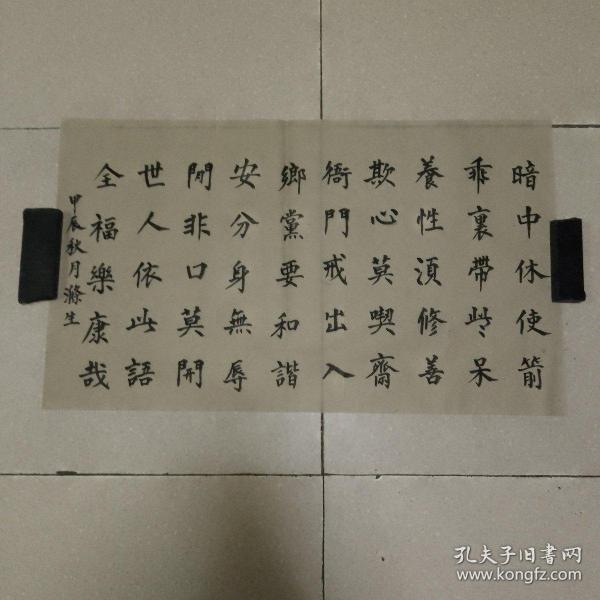 暗中休使箭
乖裏帶些呆
養性須修善
欺心莫喫齋
衙門戒出入
鄉黨要和諧
安分身無辱
閒非口莫開
世人依此語
全福樂康哉
甲辰秋月滌生
孔夫子旧书网
www.kongfz.com